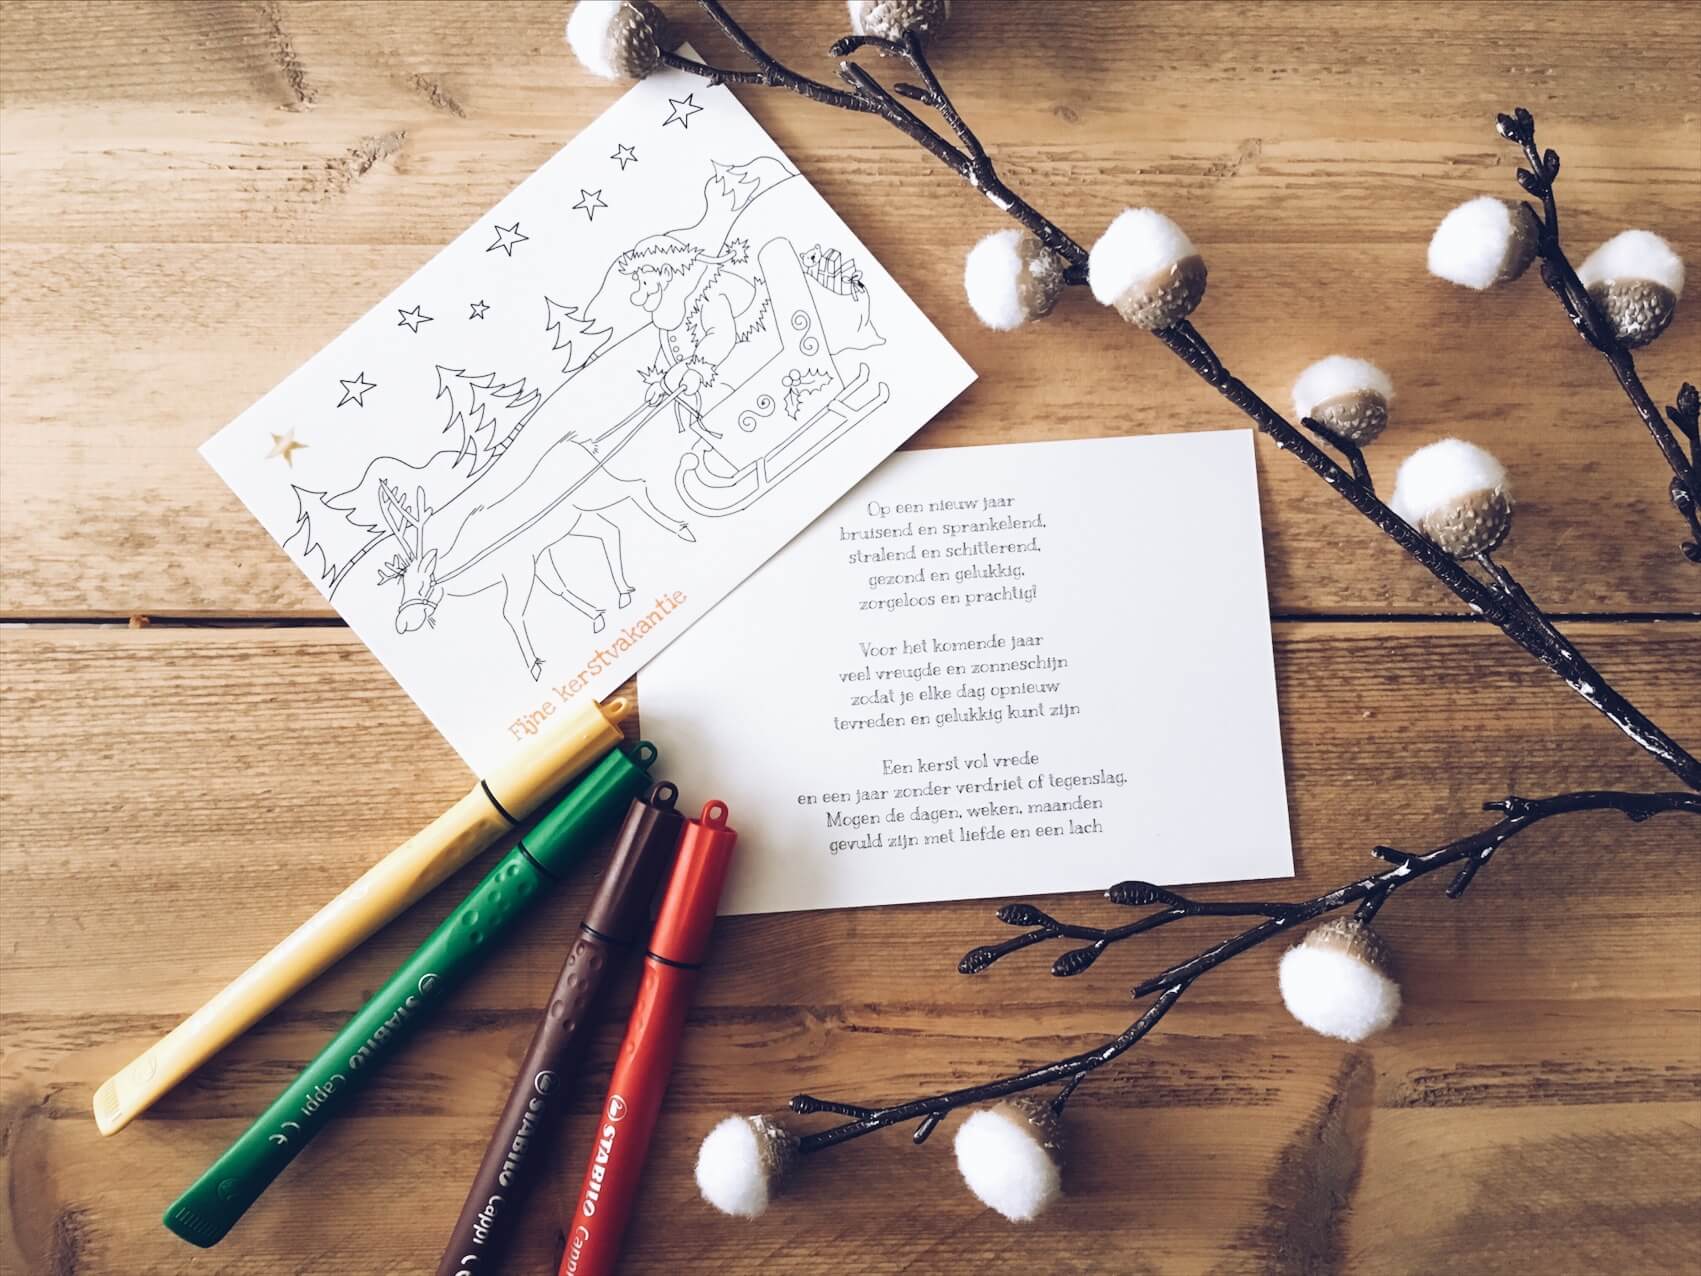 Fijne kerstvakantie
Op een nieuw jaar
bruisend en sprankelend,
stralend en schitterend,
gezond en gelukkig,
zorgeloos en prachtig!
Voor het komende jaar
veel vreugde en zonneschijn
zodat je elke dag opnieuw
tevreden en gelukkig kunt zijn
Een kerst vol vrede
en een jaar zonder verdriet of tegenslag.
Mogen de dagen, weken, maanden
gevuld zijn met liefde en een lach
STABILO Cappi CE
STABILO Cappi CE
STABILO Cappi